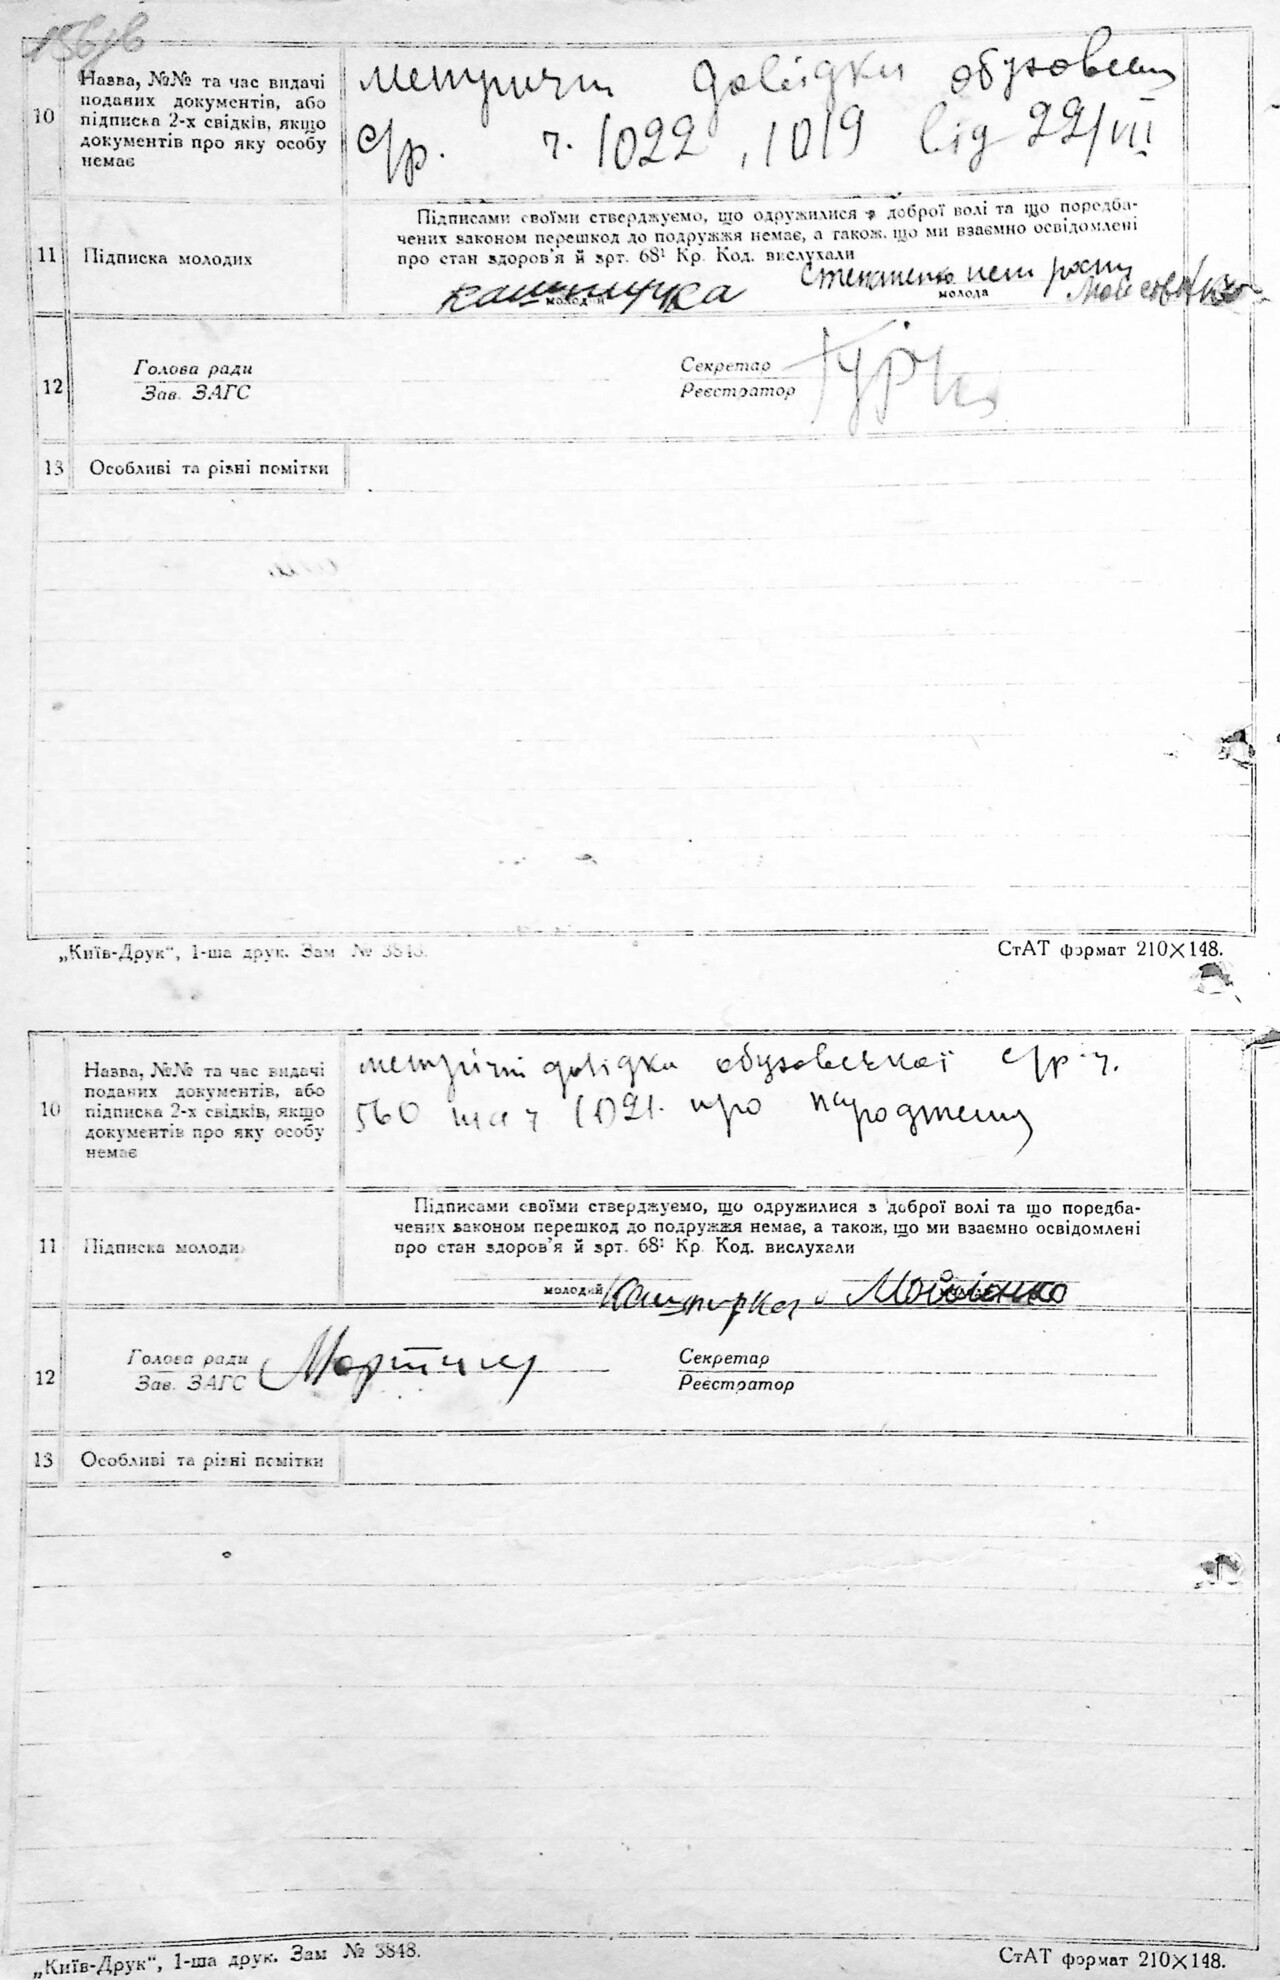 10
Назва, №№ та час видачі
поданих документів, або
підписка 2-х свідків, якщо
документів про яку особу
немає
метричні довідки обуховська
с/р. ч. 1022, 1019 від 22/VII
11
Підписка молодих
Підписами своїми стверджуємо, що одружилися з доброї волі та що поредба-
чених законом перешкод до подружжя немає, а також, що ми взаємно освідомлені
про стан здоров'я й арт. 68¹ Кр. Код. вислухали
молодий
Степаненко
молода
12
Голова ради
Зав. ЗАГС
Секретар
Реєстратор
13
Особливі та різні помітки
„Київ-Друк“, 1-ша друк. Зам № 3848.
СтАТ формат 210×148.
10
Назва, №№ та час видачі
поданих документів, або
підписка 2-х свідків, якщо
документів про яку особу
немає
метрічні довідки обуховської с/р. ч.
560 та ч 1021. про народження
11
Підписка молодих
Підписами своїми стверджуємо, що одружилися з доброї волі та що поредба-
чених законом перешкод до подружжя немає, а також, що ми взаємно освідомлені
про стан здоров'я й арт. 68¹ Кр. Код. вислухали
молодий Кашпурка
12
Голова ради
Зав. ЗАГС
Секретар
Реєстратор
13
Особливі та різні помітки
„Київ-Друк“, 1-ша друк. Зам № 3848.
СтАТ формат 210×148.